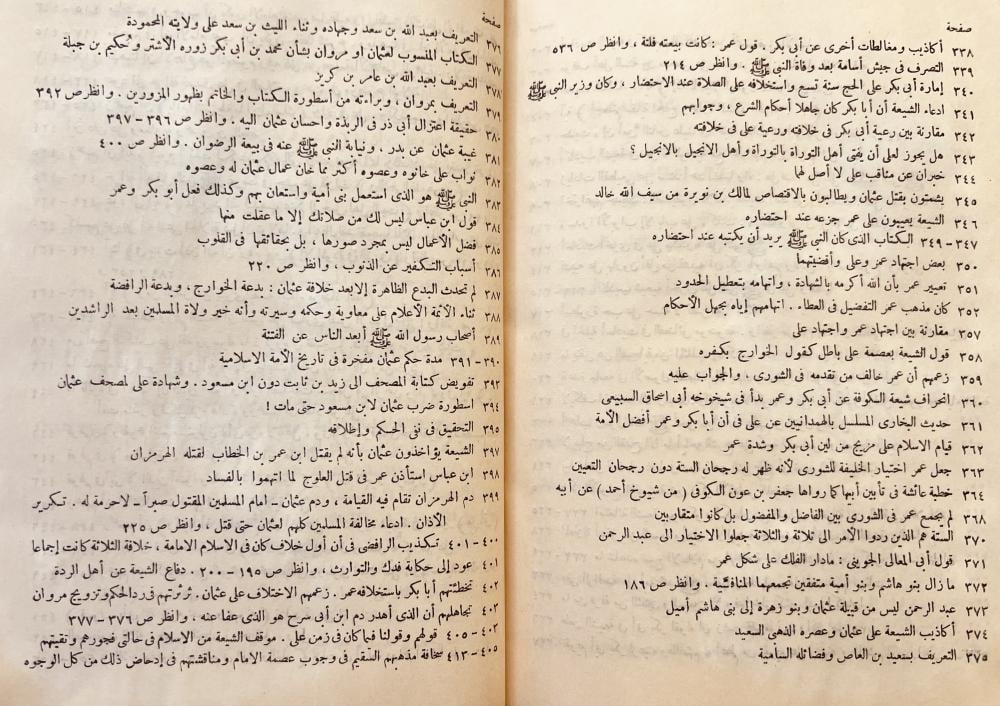 صفحة
٣٣٨ أكاذيب ومغالطات أخرى عن أبي بكر . قول عمر : كانت بيعته فلتة ، وانظر ص ٥٣٦
٣٣٩ التصرف فى جيش أسامة بعد وفاة النبي ﷺ . وانظر ص ٢١٤
٣٤٠ إمارة أبي بكر على الحج سنة تسع واستخلافه على الصلاة عند الاحتضار ، وكان وزير النبي ﷺ
٣٤١ ادعاء الشيعة أن أبا بكر كان جاهلا أحكام الشرع ، وجوابهم
٣٤٢ مقارنة بين رعية أبي بكر فى خلافته ورعية على فى خلافته
٣٤٣ هل يجوز لعلى أن يفتى أهل التوراة بالتوراة وأهل الانجيل بالانجيل ؟
٣٤٤ خبران عن مناقب على لا أصل لها
٣٤٥ يشمتون بقتل عثمان ويطالبون بالاقتصاص لمالك بن نويرة من سيف الله خالد
٣٤٦ الشيعة يعيبون على عمر جزعه عند احتضاره
٣٤٧ - ٣٤٩ الكتاب الذى كان النبي ﷺ يريد أن يكتبه عند احتضاره
٣٥٠ بعض اجتهاد عمر وعلى وأقضيتهما
٣٥١ تعيير عمر بأن الله أكرمه بالشهادة ، واتهامه بتعطيل الحدود
٣٥٢ كان مذهب عمر التفضيل فى العطاء . اتهامهم إياه بجهل الأحكام
٣٥٧ مقارنة بين اجتهاد عمر واجتهاد على
٣٥٨ قول الشيعة بعصمة على باطل كقول الخوارج بكفره
٣٥٩ زعمهم أن عمر خالف من تقدمه فى الشورى ، والجواب عليه
٣٦٠ انحراف شيعة الكوفة عن أبي بكر وعمر بدأ فى شيخوخه أبي اسحاق السبيعى
٣٦١ حديث البخارى المسلسل بالهمدانيين عن على فى أن أبا بكر وعمر أفضل الأمة
٣٦٢ قيام الاسلام على مزيج من لين أبي بكر وشدة عمر
٣٦٣ جعل عمر اختيار الخليفة للشورى لأنه ظهر له رجحان الستة دون رجحان التعيين
٣٦٤ خطبة عائشة فى تأبين أبيها كما رواها جعفر بن عون الكوفى ( من شيوخ أحمد ) عن أبيه
٣٦٨ لم يجمع عمر فى الشورى بين الفاضل والمفضول بل كانوا متقاربين
٣٧٠ الستة هم الذين ردوا الأمر الى ثلاثة والثلاثة جعلوا الاختيار الى عبد الرحمن
٣٧١ قول أبي المعالى الجوينى : مادار الفلك على شكل عمر
٣٧٢ ما زال بنو هاشم وبنو أمية متفقين تجمعهما المنافية . وانظر ص ١٨٦
٣٧٣ عبد الرحمن ليس من قبيلة عثمان وبنو زهرة إلى بنى هاشم أميل
٣٧٤ أكاذيب الشيعة على عثمان وعصره الذهى السعيد
٣٧٥ التعريف بسعيد بن العاص وفضائله السامية
صفحة
٣٧٦ التعريف بعبد الله بن سعد وجهاده وثناء الليث بن سعد على ولايته المحمودة
٣٧٧ الكتاب المنسوب لعثمان او مروان بشأن محمد بن أبي بكر زوره الأشتر وحُكيم بن جبلة
٣٧٨ التعريف بعبد الله بن عامر بن كريز
٣٧٩ التعريف بمروان ، وبراءته من أسطورة الكتاب والخاتم بظهور المزورين . وانظر ص ٣٩٢
٣٨٠ حقيقة اعتزال أبي ذر فى الربذة واحسان عثمان اليه . وانظر ص ٣٩٦ - ٣٩٧
٣٨١ غيبة عثمان عن بدر ، ونيابة النبي ﷺ عنه فى بيعة الرضوان . وانظر ص ٤٠٠
٣٨٢ نواب على خانوه وعصوه أكثر مما خان عمال عثمان له وعصوه
٣٨٣ النبي ﷺ هو الذى استعمل بنى أمية واستعان بهم وكذلك فعل أبو بكر وعمر
٣٨٤ قول ابن عباس ليس لك من صلاتك إلا ما عقلت منها
٣٨٥ فضل الأعمال ليس بمجرد صورها ، بل بحقائقها فى القلوب
٣٨٦ أسباب التكفير عن الذنوب ، وانظر ص ٢٢٠
٣٨٧ لم تحدث البدع الظاهرة إلا بعد خلافة عثمان : بدعة الخوارج ، وبدعة الرافضة
٣٨٨ ثناء الأئمة الأعلام على معاوية وحكمه وسيرته وأنه خير ولاة المسلمين بعد الراشدين
٣٨٩ أصحاب رسول الله ﷺ أبعد الناس عن الفتنة
٣٩٠ - ٣٩١ مدة حكم عثمان مفخرة فى تاريخ الأمة الاسلامية
٣٩٢ تفويض كتابة المصحف الى زيد بن ثابت دون ابن مسعود . وشهادة على لمصحف عثمان
٣٩٤ اسطورة ضرب عثمان لابن مسعود حتى مات !
٣٩٥ التحقيق فى نفى الحكم وإطلاقه
٣٩٧ الشيعة يؤاخذون عثمان بأنه لم يقتل ابن عمر بن الخطاب لقتله الهرمزان
٣٩٨ ابن عباس استأذن عمر فى قتل العلوج لما اتهموا بالفساد
٣٩٩ دم الهرمزان تقام فيه القيامة ، ودم عثمان - امام المسلمين المقتول صبراً - لاحرمة له . تكرير
الأذان . ادعاء مخالفة المسلمين كلهم لعثمان حتى قتل ، وانظر ص ٢٢٥
٤٠٠ - ٤٠١ تكذيب الرافضى فى أن أول خلاف كان فى الاسلام الامامة ، خلافة الثلاثة كانت إجماعا
٤٠١ عود إلى حكاية فدك والتوارث ، وانظر ص ١٩٥ - ٢٠٠ . دفاع الشيعة عن أهل الردة
٤٠٢ تخطئتهم أبا بكر باستخلافه عمر . زعمهم الاختلاف على عثمان . ثرثرتهم فى رد الحكم وتزويج مروان
٤٠٢ تجاهلهم أن الذى أهدر دم ابن أبي سرح هو الذى عفا عنه ، وانظر ص ٣٧٦ - ٣٧٧
٤٠٣ - ٤٠٥ قولهم وقولنا فيما كان فى زمن على . موقف الشيعة من الاسلام فى حالتى فجورهم وتقيتهم
٤٠٥ - ٤١٣ سخافة مذهبهم السقيم فى وجوب عصمة الامام ومناقشتهم فى إدحاض ذلك من كل الوجوه